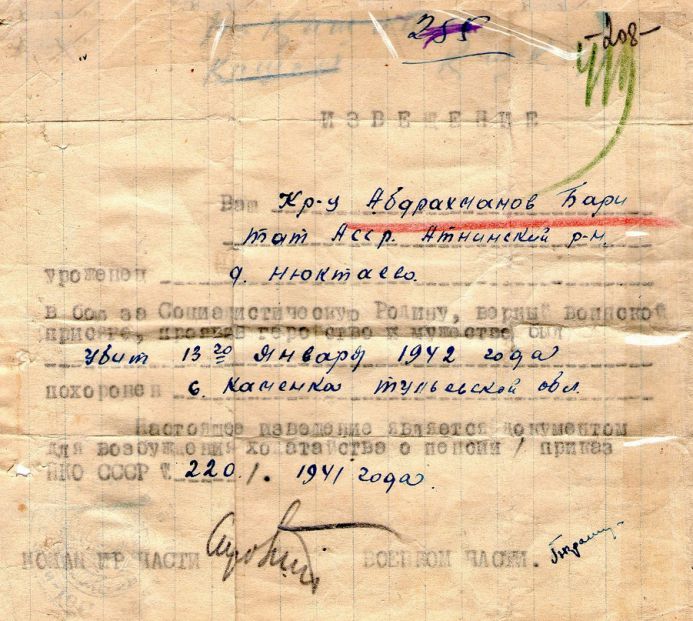 255
-208-
ИЗВЕЩЕНИЕ
Ваш Кр-ц Абдрахманов Бари
тат Асср. Атнинский р-н.
уроженец д. Нюктаево.
в бою за Социалистическую Родину, верный воинской
присяге, проявив геройство и мужество был
убит 13го Января 1942 года
похоронен с. Каченка тульевской обл.
Настоящее изведение является документом
для возбуждения ходатайства о пенсии / приказ
НКО СССР № 220/. 1941 года.
КОМАНДИР ЧАСТИ ВОЕНКОМ ЧАСТИ.